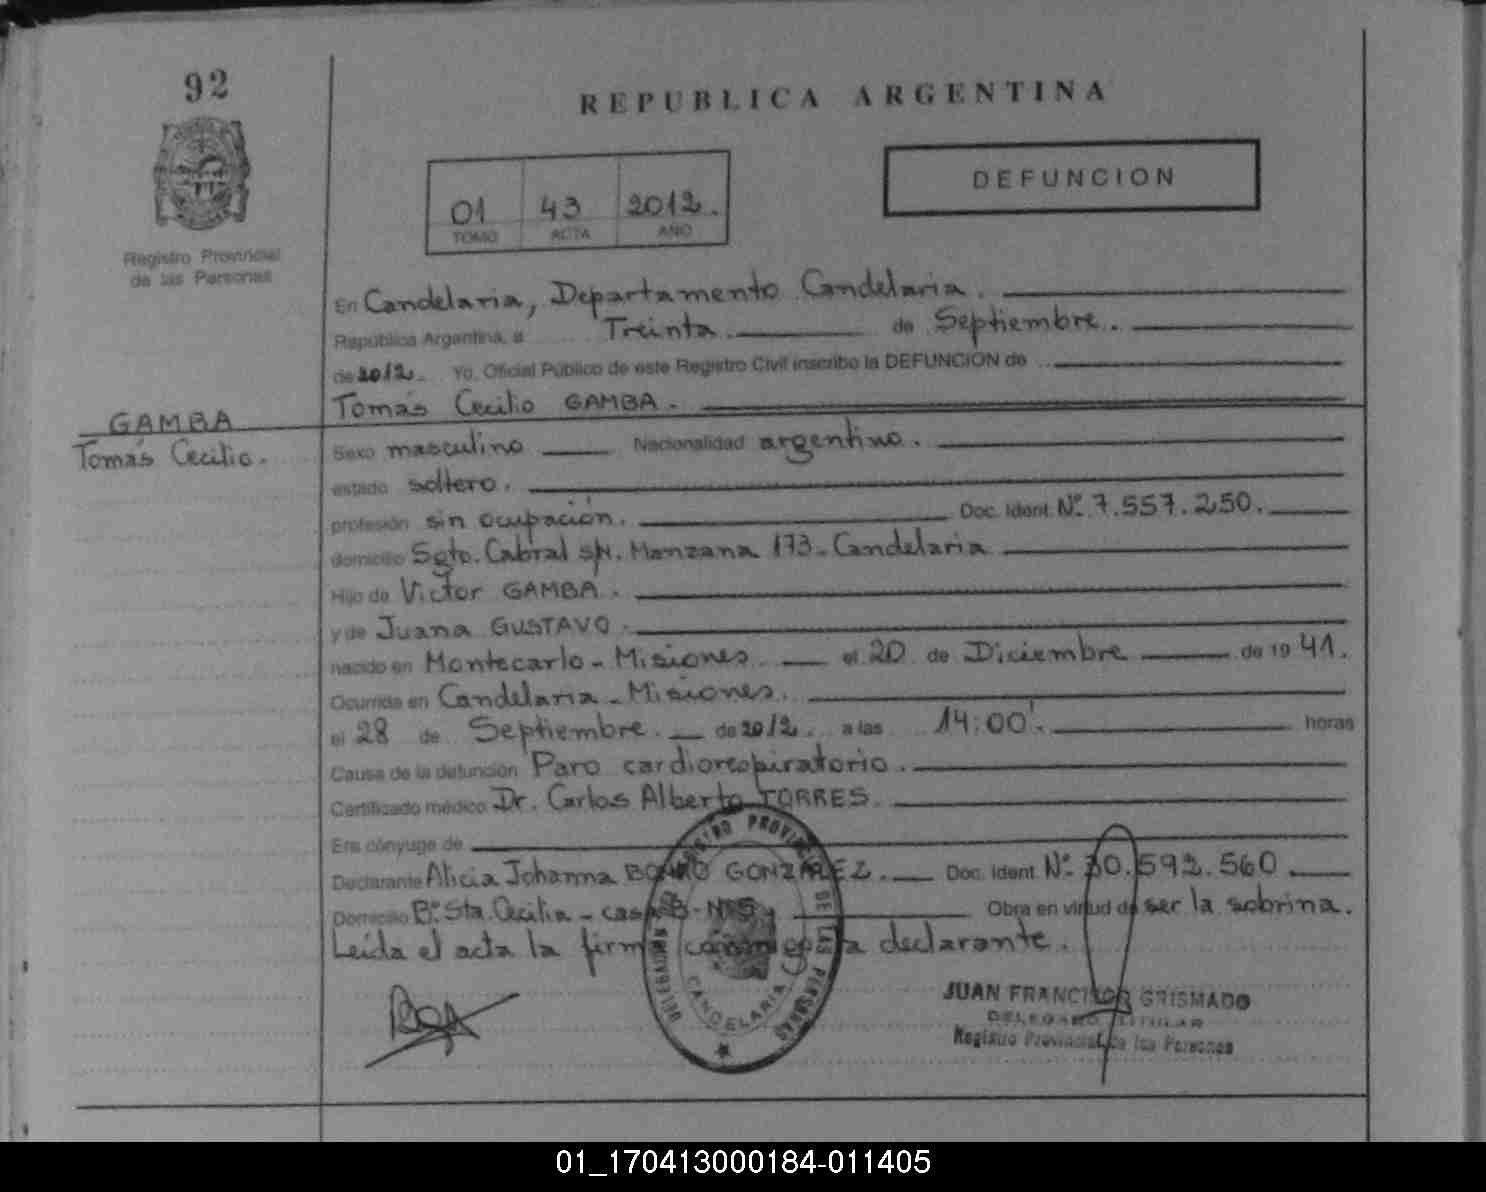 92
REPUBLICA ARGENTINA
DEFUNCION
01 43 2012.
TOMO ACTA AÑO
Registro Provincial
de las Personas
En Candelaria, Departamento Candelaria.
República Argentina, a Treinta. de Septiembre.
de 2012. Yo, Oficial Público de este Registro Civil inscribo la DEFUNCION de
Tomás Cecilio GAMBA.
GAMBA
Tomás Cecilio.
Sexo masculino Nacionalidad argentino.
estado soltero.
profesión sin ocupación. Doc. Ident. Nº 7.557.250.
domicilio Sgto. Cabral s/N. Manzana 173 - Candelaria
Hijo de Victor GAMBA.
y de Juana GUSTAVO.
nacido en Montecarlo - Misiones. el 20 de Diciembre de 19 41.
Ocurrida en Candelaria - Misiones.
el 28 de Septiembre. de 2012. a las 14:00'. horas
Causa de la defunción Paro cardiorespiratorio.
Certificado médico Dr. Carlos Alberto TORRES.
Era cónyuge de
Declarante Alicia Johanna GONZALEZ. Doc. Ident. Nº 30.592.560
Domicilio Bº Sta. Cecilia - casa Obra en virtud de ser la sobrina.
Leída el acta la firma conmigo la declarante.
REGISTRO PROVINCIAL DE LAS PERSONAS
CANDELARIA
JUAN FRANCISCO GRISMADO
DELEGADO TITULAR
Registro Provincial de las Personas
01_170413000184-011405